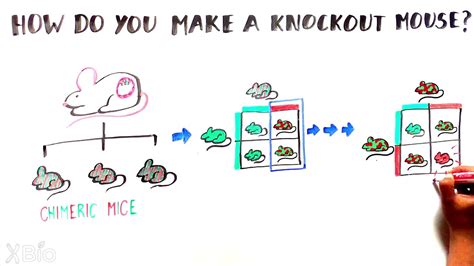 HOW DO YOU MAKE A KNOCKOUT MOUSE?
CHIMERIC MICE
XBio